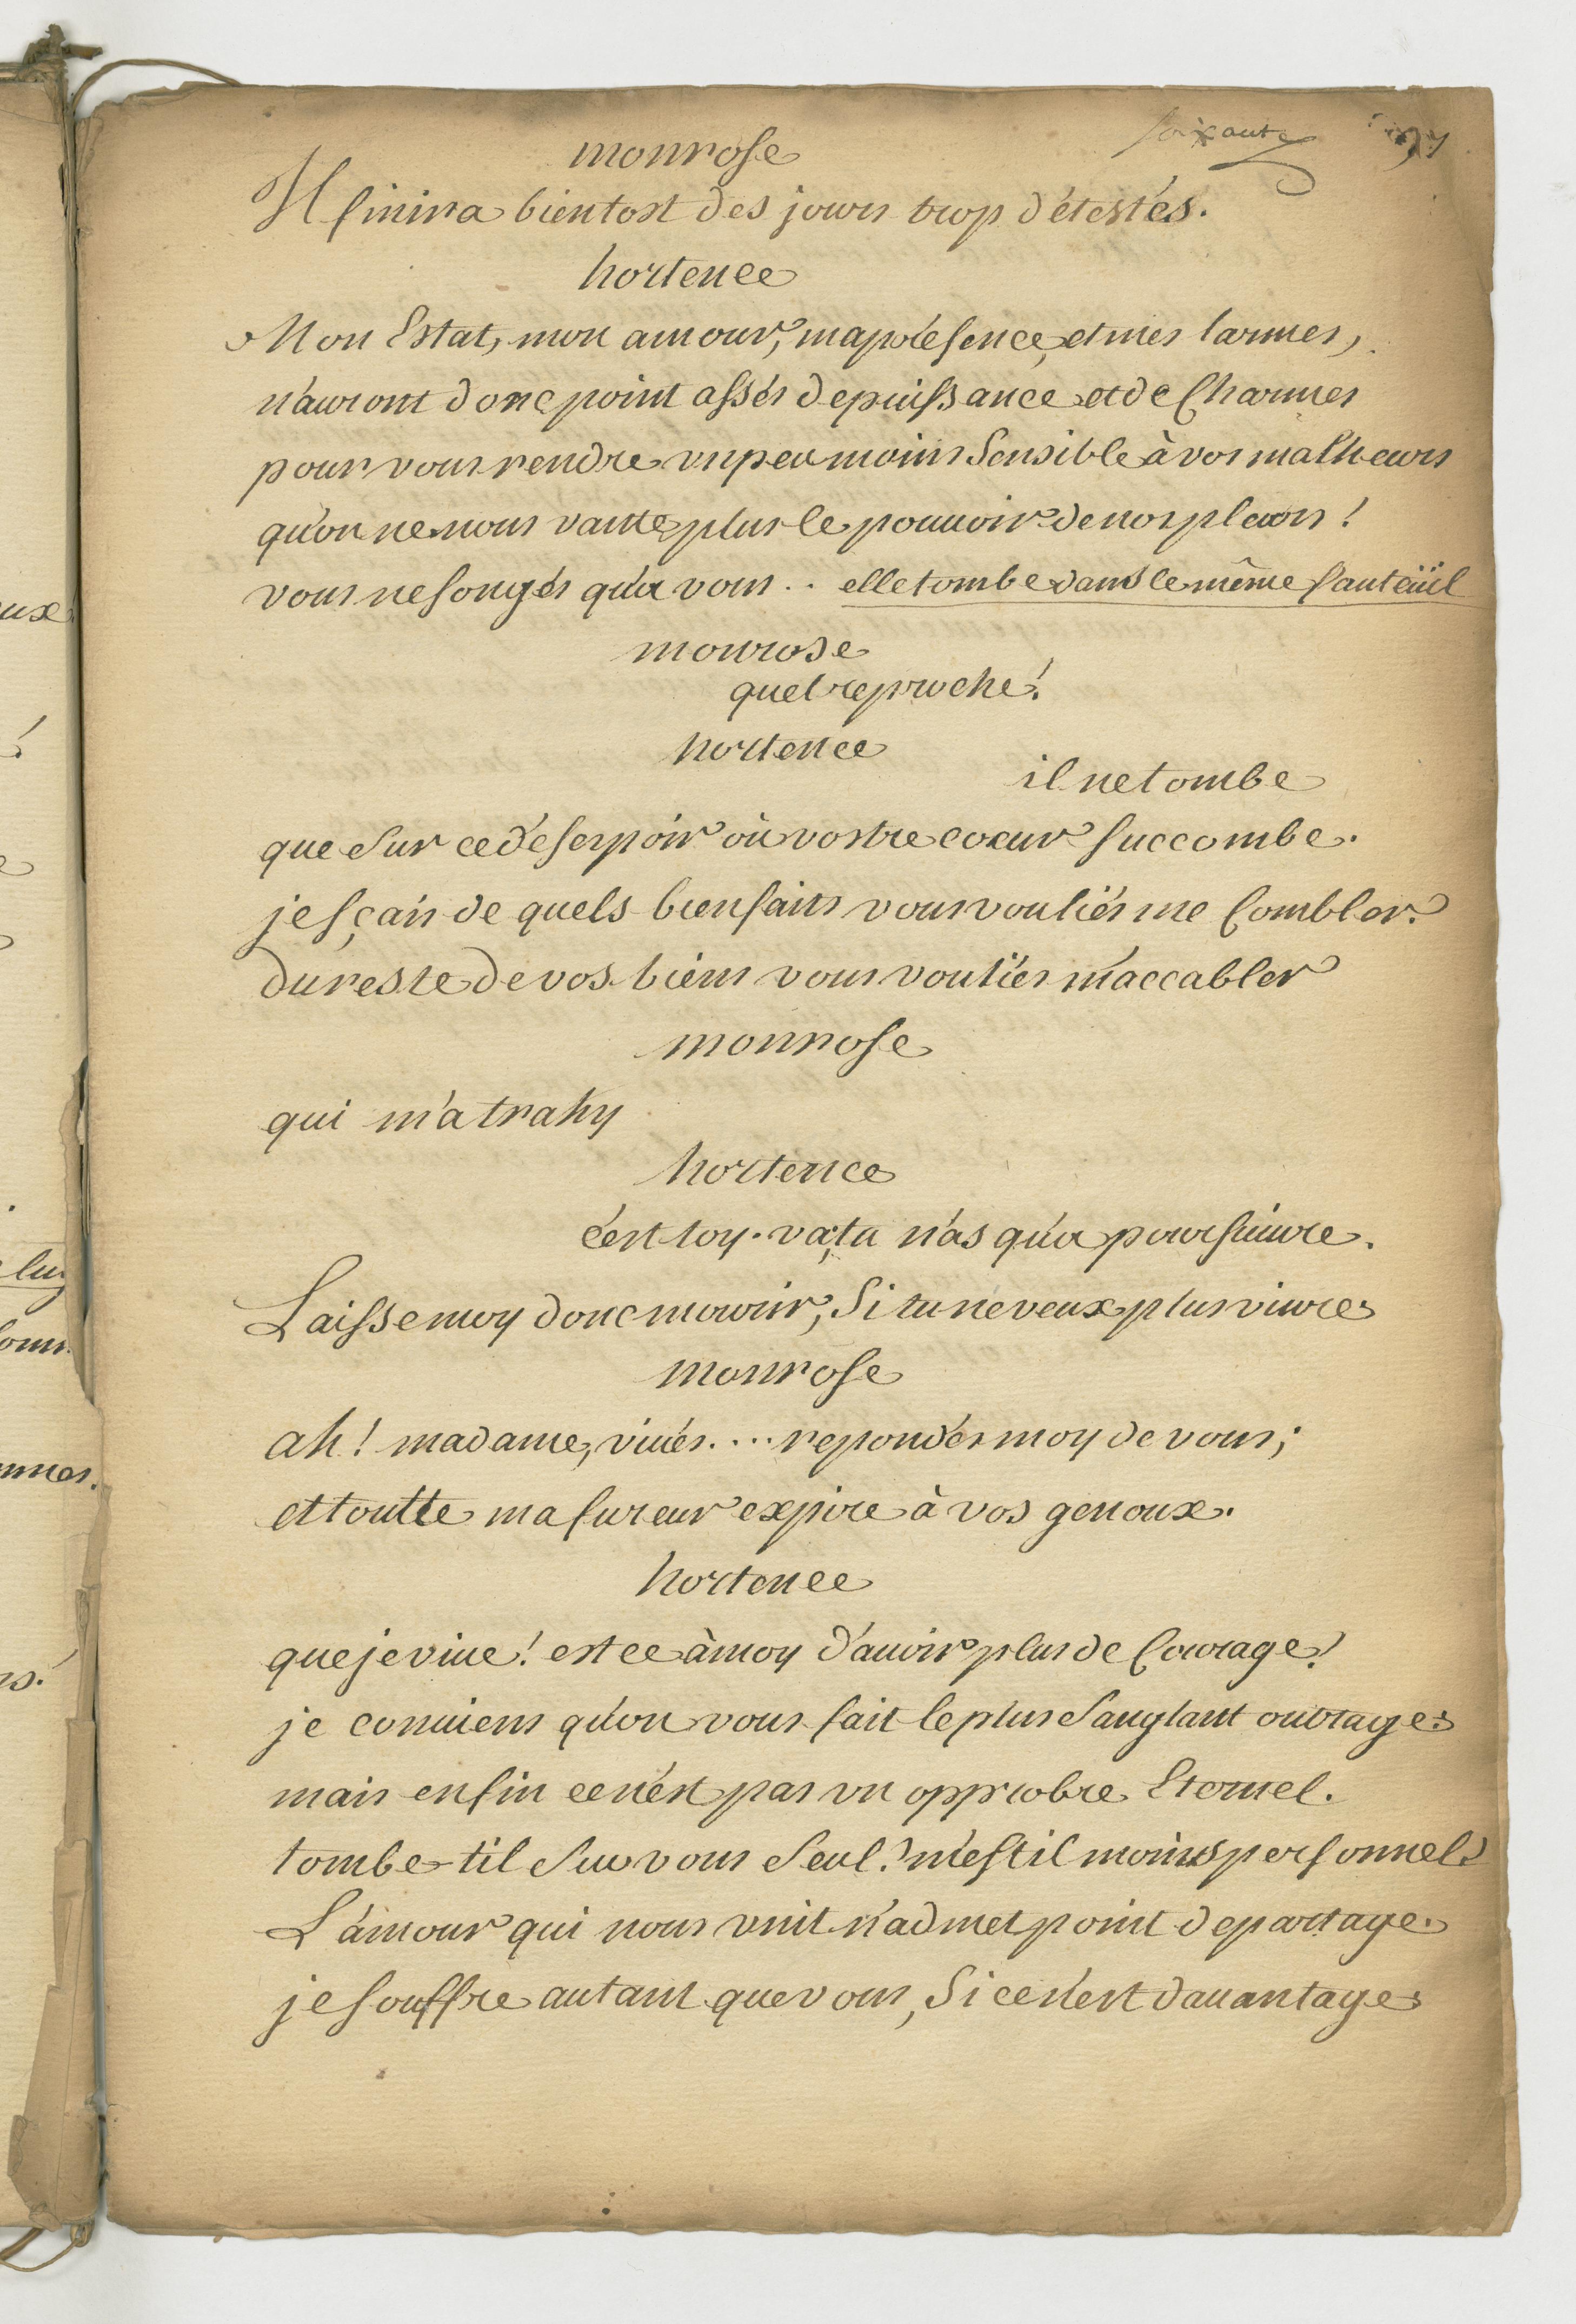 soixante
monrose
Il finira bientost des jours trop d'étestés.
hortence
Mon Estat, mon amour, ma présence, et mes larmes,
n'auront donc point assés de puissance et de Charmes
pour vous rendre un peu moins Sensible à vos malheurs
qu'on ne nous vante plus le pouuoir de nos pleurs !
vous ne songés qu'a vous .. elle tombe dans le même fauteüil
monrose
quel reproche !
hortence
il ne tombe
que Sur ce désespoir où vostre coeur succombe.
je sçais de quels bienfaits vous vouliés me Combler.
du reste de vos biens vous vouliés m'accabler
monrose
qui m'a trahy
hortence
c'est toy. va, tu n'as qu'a poursuiure.
Laisse moy donc mourir, Si tu ne veux plus viure
monrose
ah ! madame, viués .... repondés moy de vous ;
et toutte ma fureur expire à vos genoux.
hortence
que je viue ! est ce à moy d'auoir plus de Courage ?
je conuiens qu'on vous fait le plus Sanglant outrage :
mais enfin ce n'est pas vn opprobre Eternel.
tombe-til Sur vous Seul ? m'est il moins personnel ?
L'amour qui nous vnit n'admet point de partage.
je souffre autant que vous, Si ce n'est dauantage